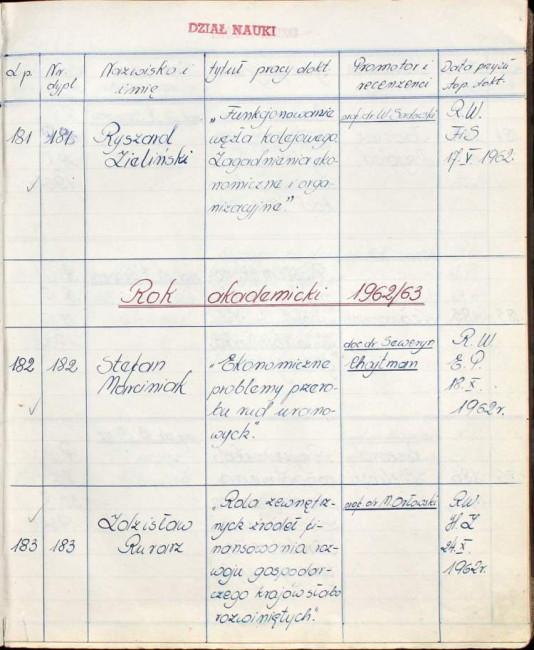 DZIAŁ NAUKI
L.p. Nr. dypl. Nazwisko i imię tytuł pracy dokt. Promotor i recenzenci Data przyzn. stop. dokt.
181 181 Ryszard Zieliński
„Funkcjonowanie
węzła kolejowego
Zagadnienia eko-
nomiczne i orga-
nizacyjne."
prof. dr W.
R.W.
FiS
17.V.1962.
Rok akademicki 1962/63
182 182 Stefan Marciniak
„Ekonomiczne
problemy przero-
bu rud urano-
wych".
doc. dr. Seweryn
Chajtman
R.W.
E.P.
18.X.
1962r.
183 183 Zdzisław Rurarz
„Rola zewnętrz-
nych źródeł fi-
nansowania roz-
woju gospodar-
czego krajów słabo
rozwiniętych".
prof. dr M. Orłowski
R.W.
H.Z
24.X.
1962r.